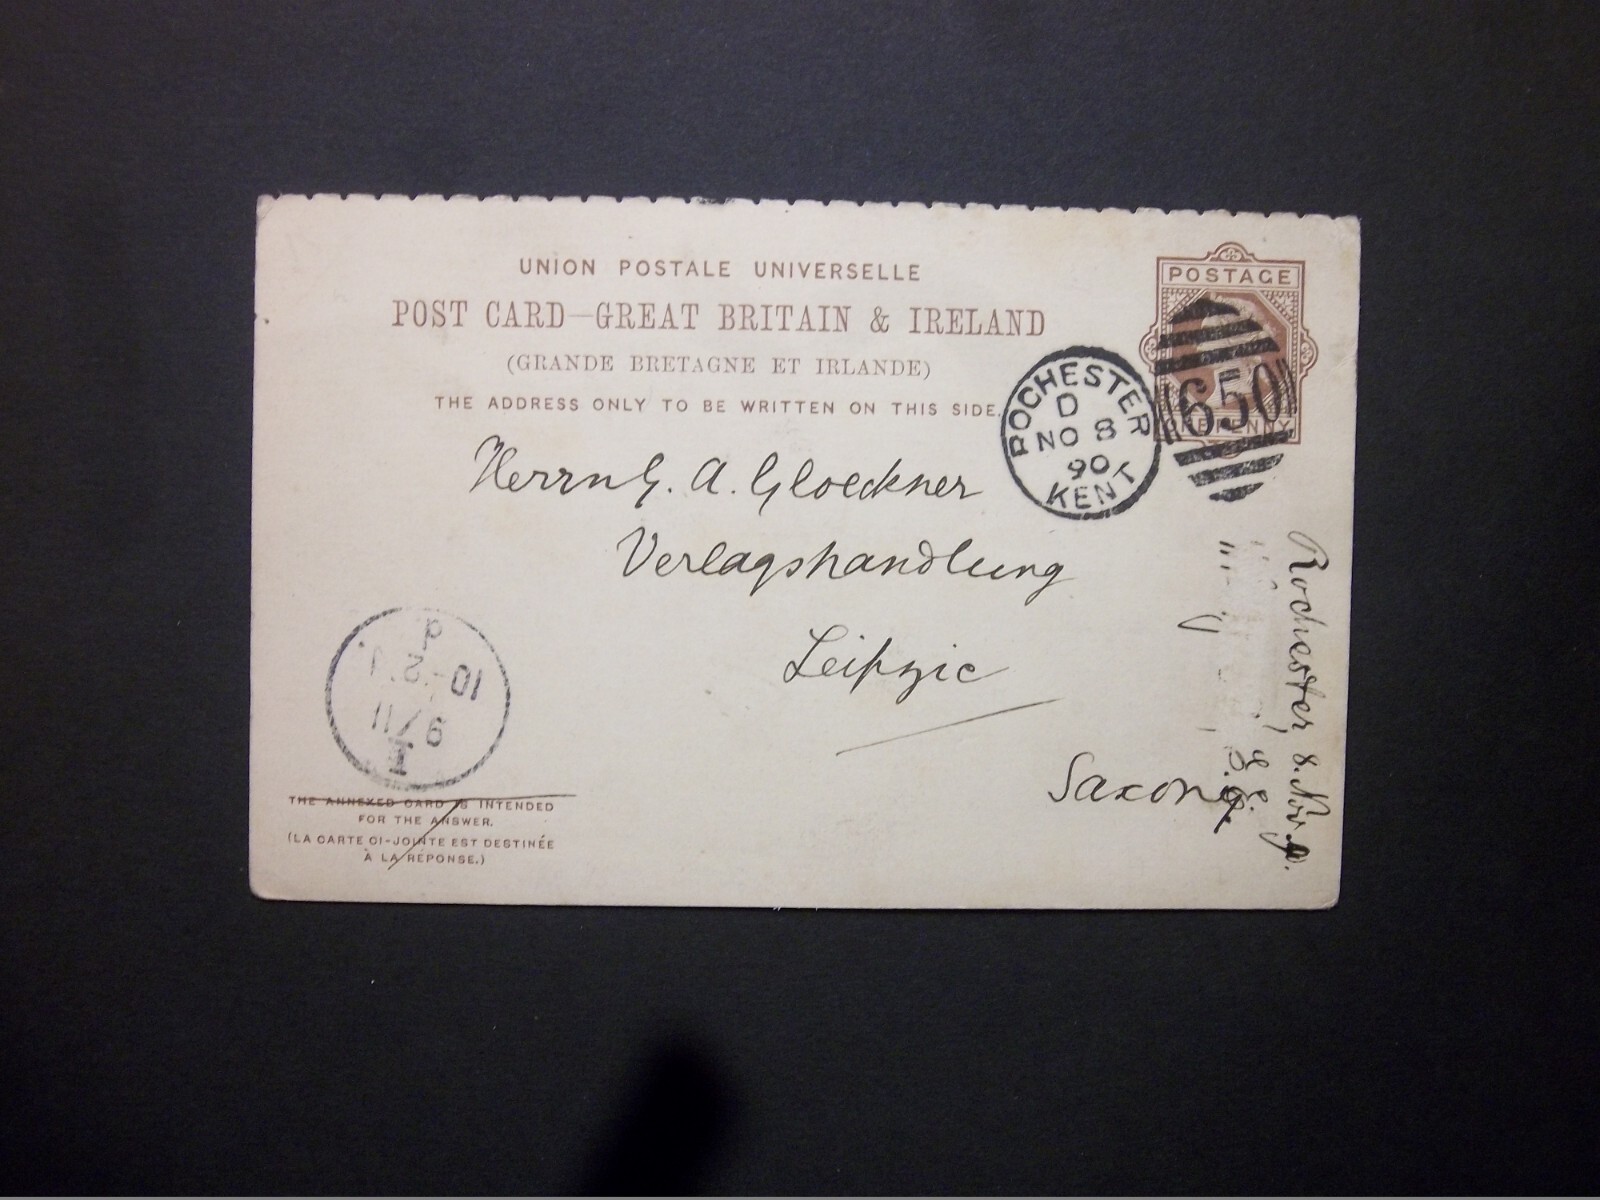 UNION POSTALE UNIVERSELLE
POST CARD—GREAT BRITAIN & IRELAND
(GRANDE BRETAGNE ET IRLANDE)
THE ADDRESS ONLY TO BE WRITTEN ON THIS SIDE.
POSTAGE
ONE PENNY
650
ROCHESTER
D
NO 8
90
KENT
Herrn G. A. Gloeckner
Verlagshandlung
Leipzic
Saxony.
Rochester, 8. Nov.
I
9/11
THE ANNEXED CARD IS INTENDED
FOR THE ANSWER.
(LA CARTE CI-JOINTE EST DESTINÉE
À LA RÉPONSE.)